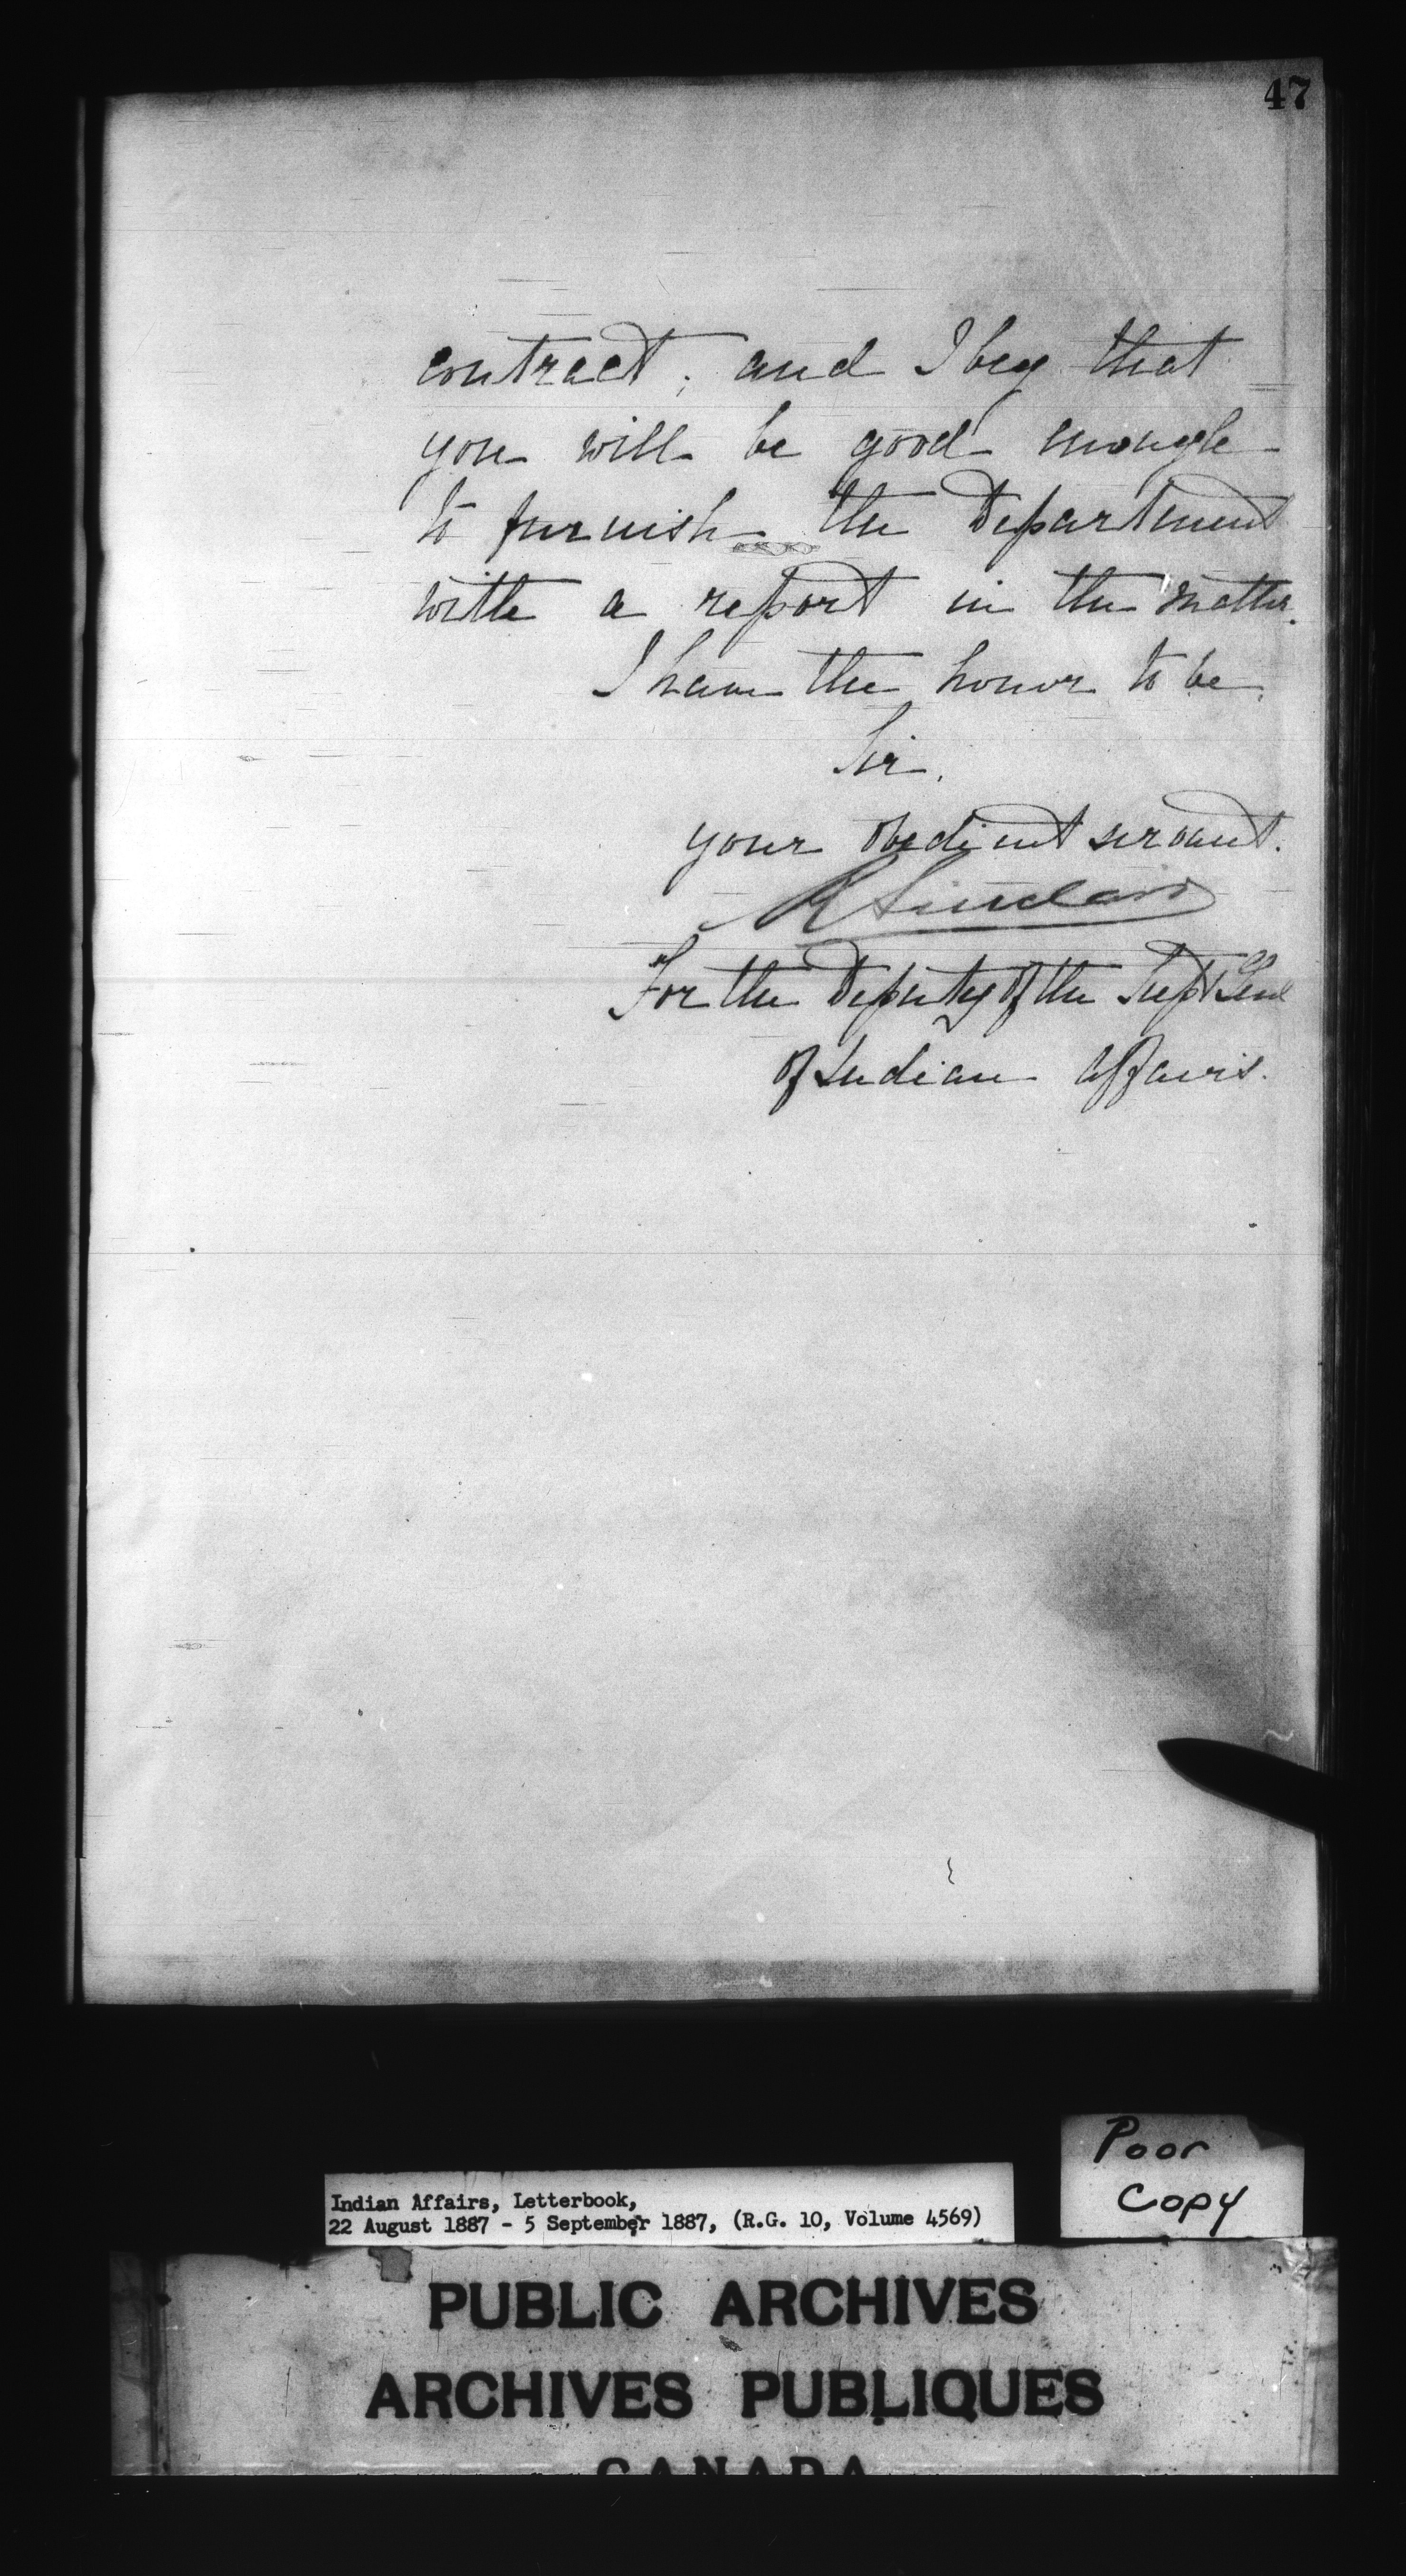 47
contract, and I beg that
you will be good enough
to furnish the Department
with a report in the matter.
I have the honor to be,
Sir,
your obedient servant.
R Sinclair
For the Deputy of the Supt Genl
of Indian Affairs.
Poor
Copy
Indian Affairs, Letterbook,
22 August 1887 - 5 September 1887, (R.G. 10, Volume 4569)
PUBLIC ARCHIVES
ARCHIVES PUBLIQUES
CANADA